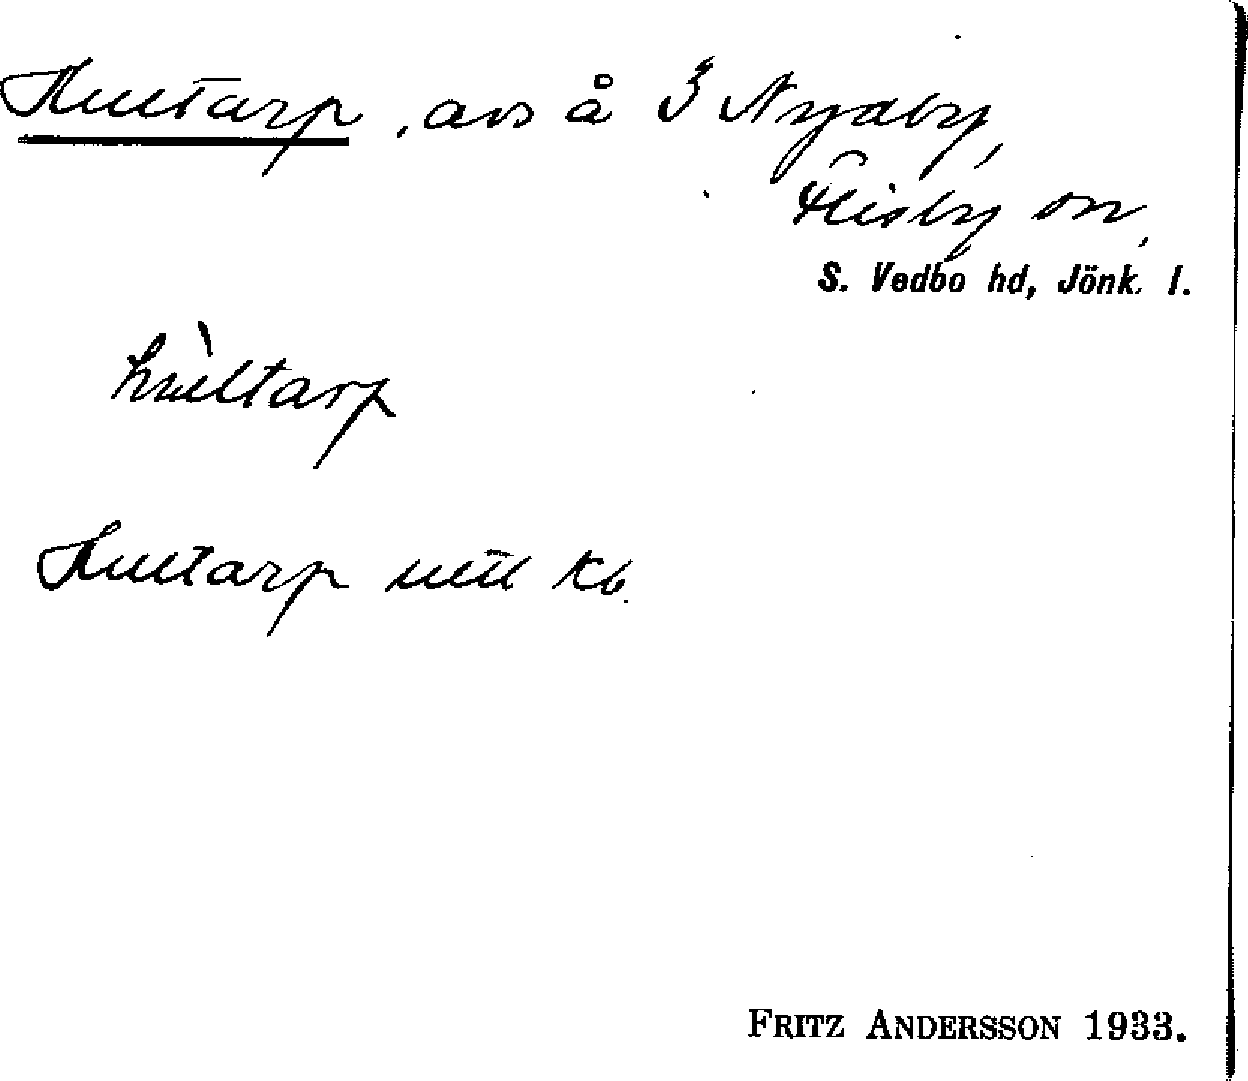 Hultarp, avs å 3 Nydby,
Flisby sn,
S. Vedbo hd, Jönk. l.
hùltarp
Hultarp utt kb.
FRITZ ANDERSSON 1933.